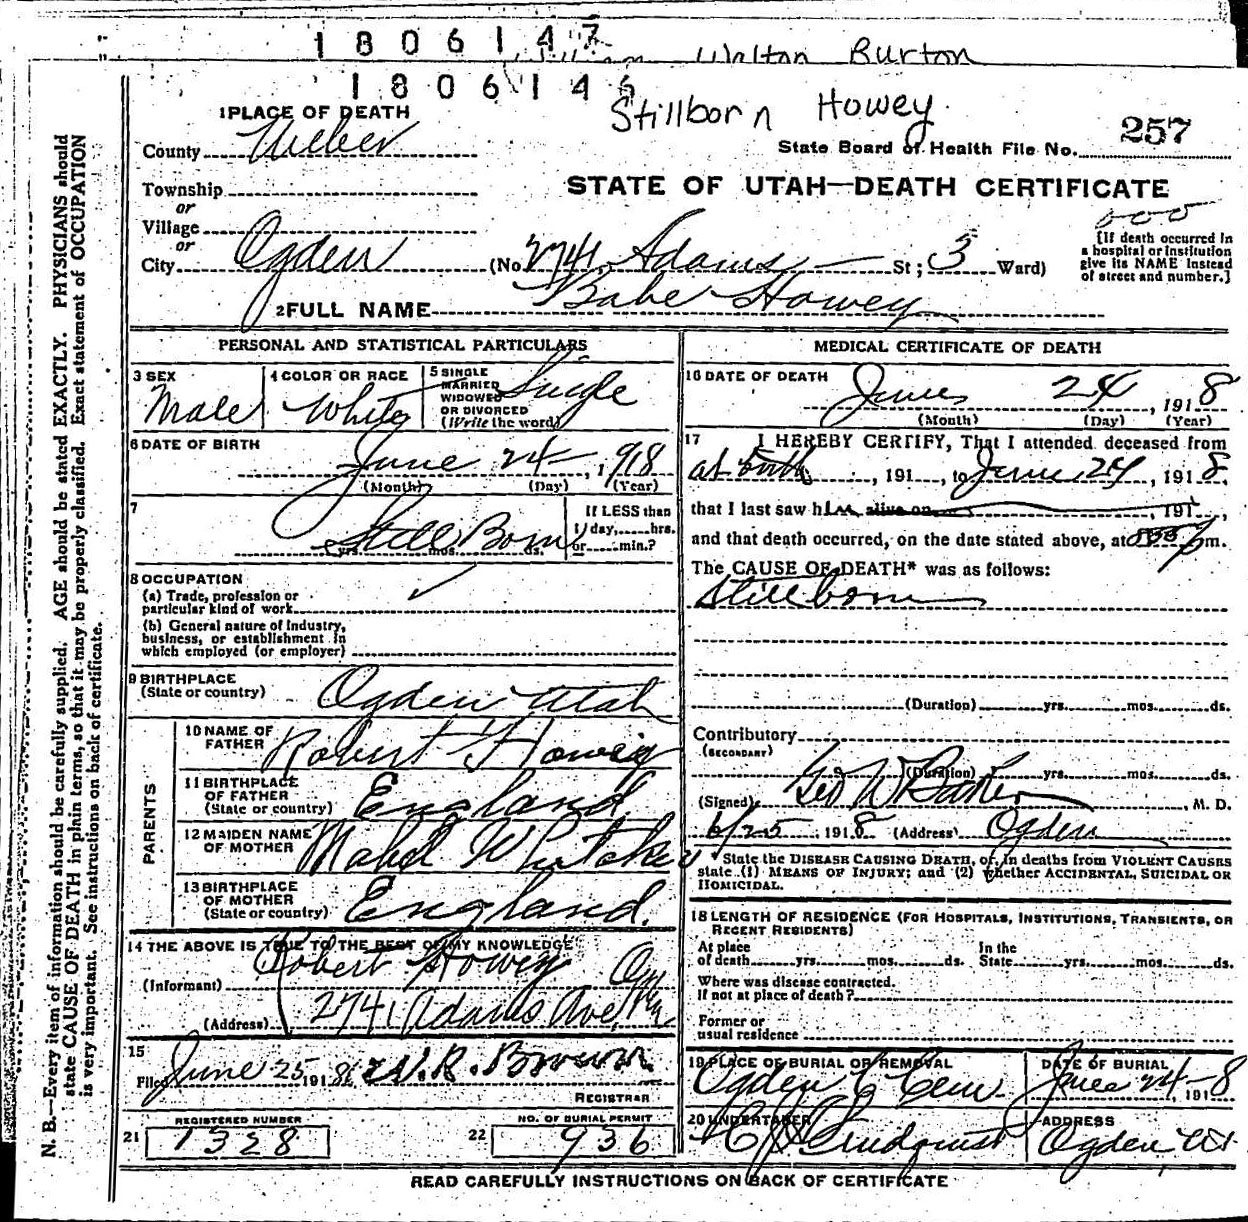 1806147 Walton Burton
1806146
Stillborn Howey
1 PLACE OF DEATH
257
State Board of Health File No.
County Weber
STATE OF UTAH—DEATH CERTIFICATE
Township
or
Village
or
City Ogden (No. 2741 Adams St; 5 Ward)
[If death occurred in
a hospital or institution
give its NAME instead
of street and number.]
2 FULL NAME Babe Howey
PERSONAL AND STATISTICAL PARTICULARS
3 SEX
Male
4 COLOR OR RACE
White
5 SINGLE
MARRIED
WIDOWED
OR DIVORCED
(Write the word)
Single
6 DATE OF BIRTH
June 24, 1918
(Month) (Day) (Year)
7
Still Born
yrs. mos. ds.
If LESS than
1 day, hrs.
or min.?
8 OCCUPATION
(a) Trade, profession or
particular kind of work
(b) General nature of industry,
business, or establishment in
which employed (or employer)
9 BIRTHPLACE
(State or country)
Ogden Utah
PARENTS
10 NAME OF
FATHER
Robert Howey
11 BIRTHPLACE
OF FATHER
(State or country)
England
12 MAIDEN NAME
OF MOTHER
Mabel Whitaker
13 BIRTHPLACE
OF MOTHER
(State or country)
England.
14 THE ABOVE IS TRUE TO THE BEST OF MY KNOWLEDGE
(Informant) Robert Howey
(Address) 2741 Adams Ave
15
Filed June 25 1918 W.R. Brown
REGISTRAR
REGISTERED NUMBER
21 1328
NO. OF BURIAL PERMIT
22 936
MEDICAL CERTIFICATE OF DEATH
16 DATE OF DEATH
June 24, 1918
(Month) (Day) (Year)
17 I HEREBY CERTIFY, That I attended deceased from
at birth, 191, to June 24, 1918.
that I last saw him alive on, 191,
and that death occurred, on the date stated above, at m.
The CAUSE OF DEATH* was as follows:
Stillborn
(Duration) yrs. mos. ds.
Contributory
(SECONDARY)
(Duration) yrs. mos. ds.
(Signed) Geo W Baker, M. D.
6/25, 1918 (Address) Ogden
* State the DISEASE CAUSING DEATH, or, in deaths from VIOLENT CAUSES
state (1) MEANS OF INJURY; and (2) whether ACCIDENTAL, SUICIDAL OR
HOMICIDAL.
18 LENGTH OF RESIDENCE (FOR HOSPITALS, INSTITUTIONS, TRANSIENTS, OR
RECENT RESIDENTS)
At place
of death yrs. mos. ds.
In the
State yrs. mos. ds.
Where was disease contracted.
If not at place of death?
Former or
usual residence
19 PLACE OF BURIAL OR REMOVAL
Ogden C Cem
DATE OF BURIAL
June 24, 1918
20 UNDERTAKER
Lindquist
ADDRESS
Ogden, Ut
READ CAREFULLY INSTRUCTIONS ON BACK OF CERTIFICATE
N. B.—Every item of information should be carefully supplied. AGE should be stated EXACTLY. PHYSICIANS should
state CAUSE OF DEATH in plain terms, so that it may be properly classified. Exact statement of OCCUPATION
is very important. See instructions on back of certificate.